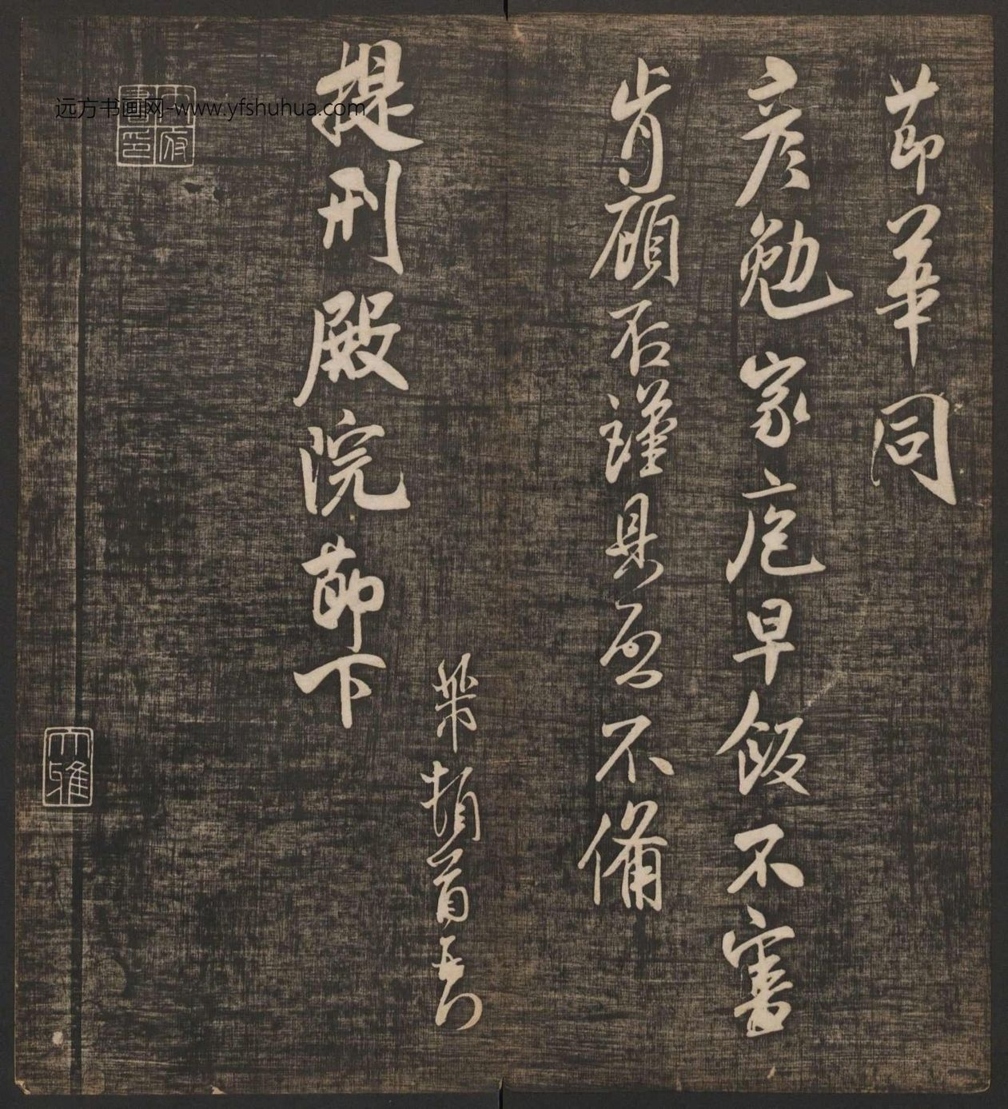 節華同
彦勉家庖早飯不審
肯顧否謹具啓不備
頓首再拜
提刑殿院節下
大雅
远方书画网-www.yfshuhua.com